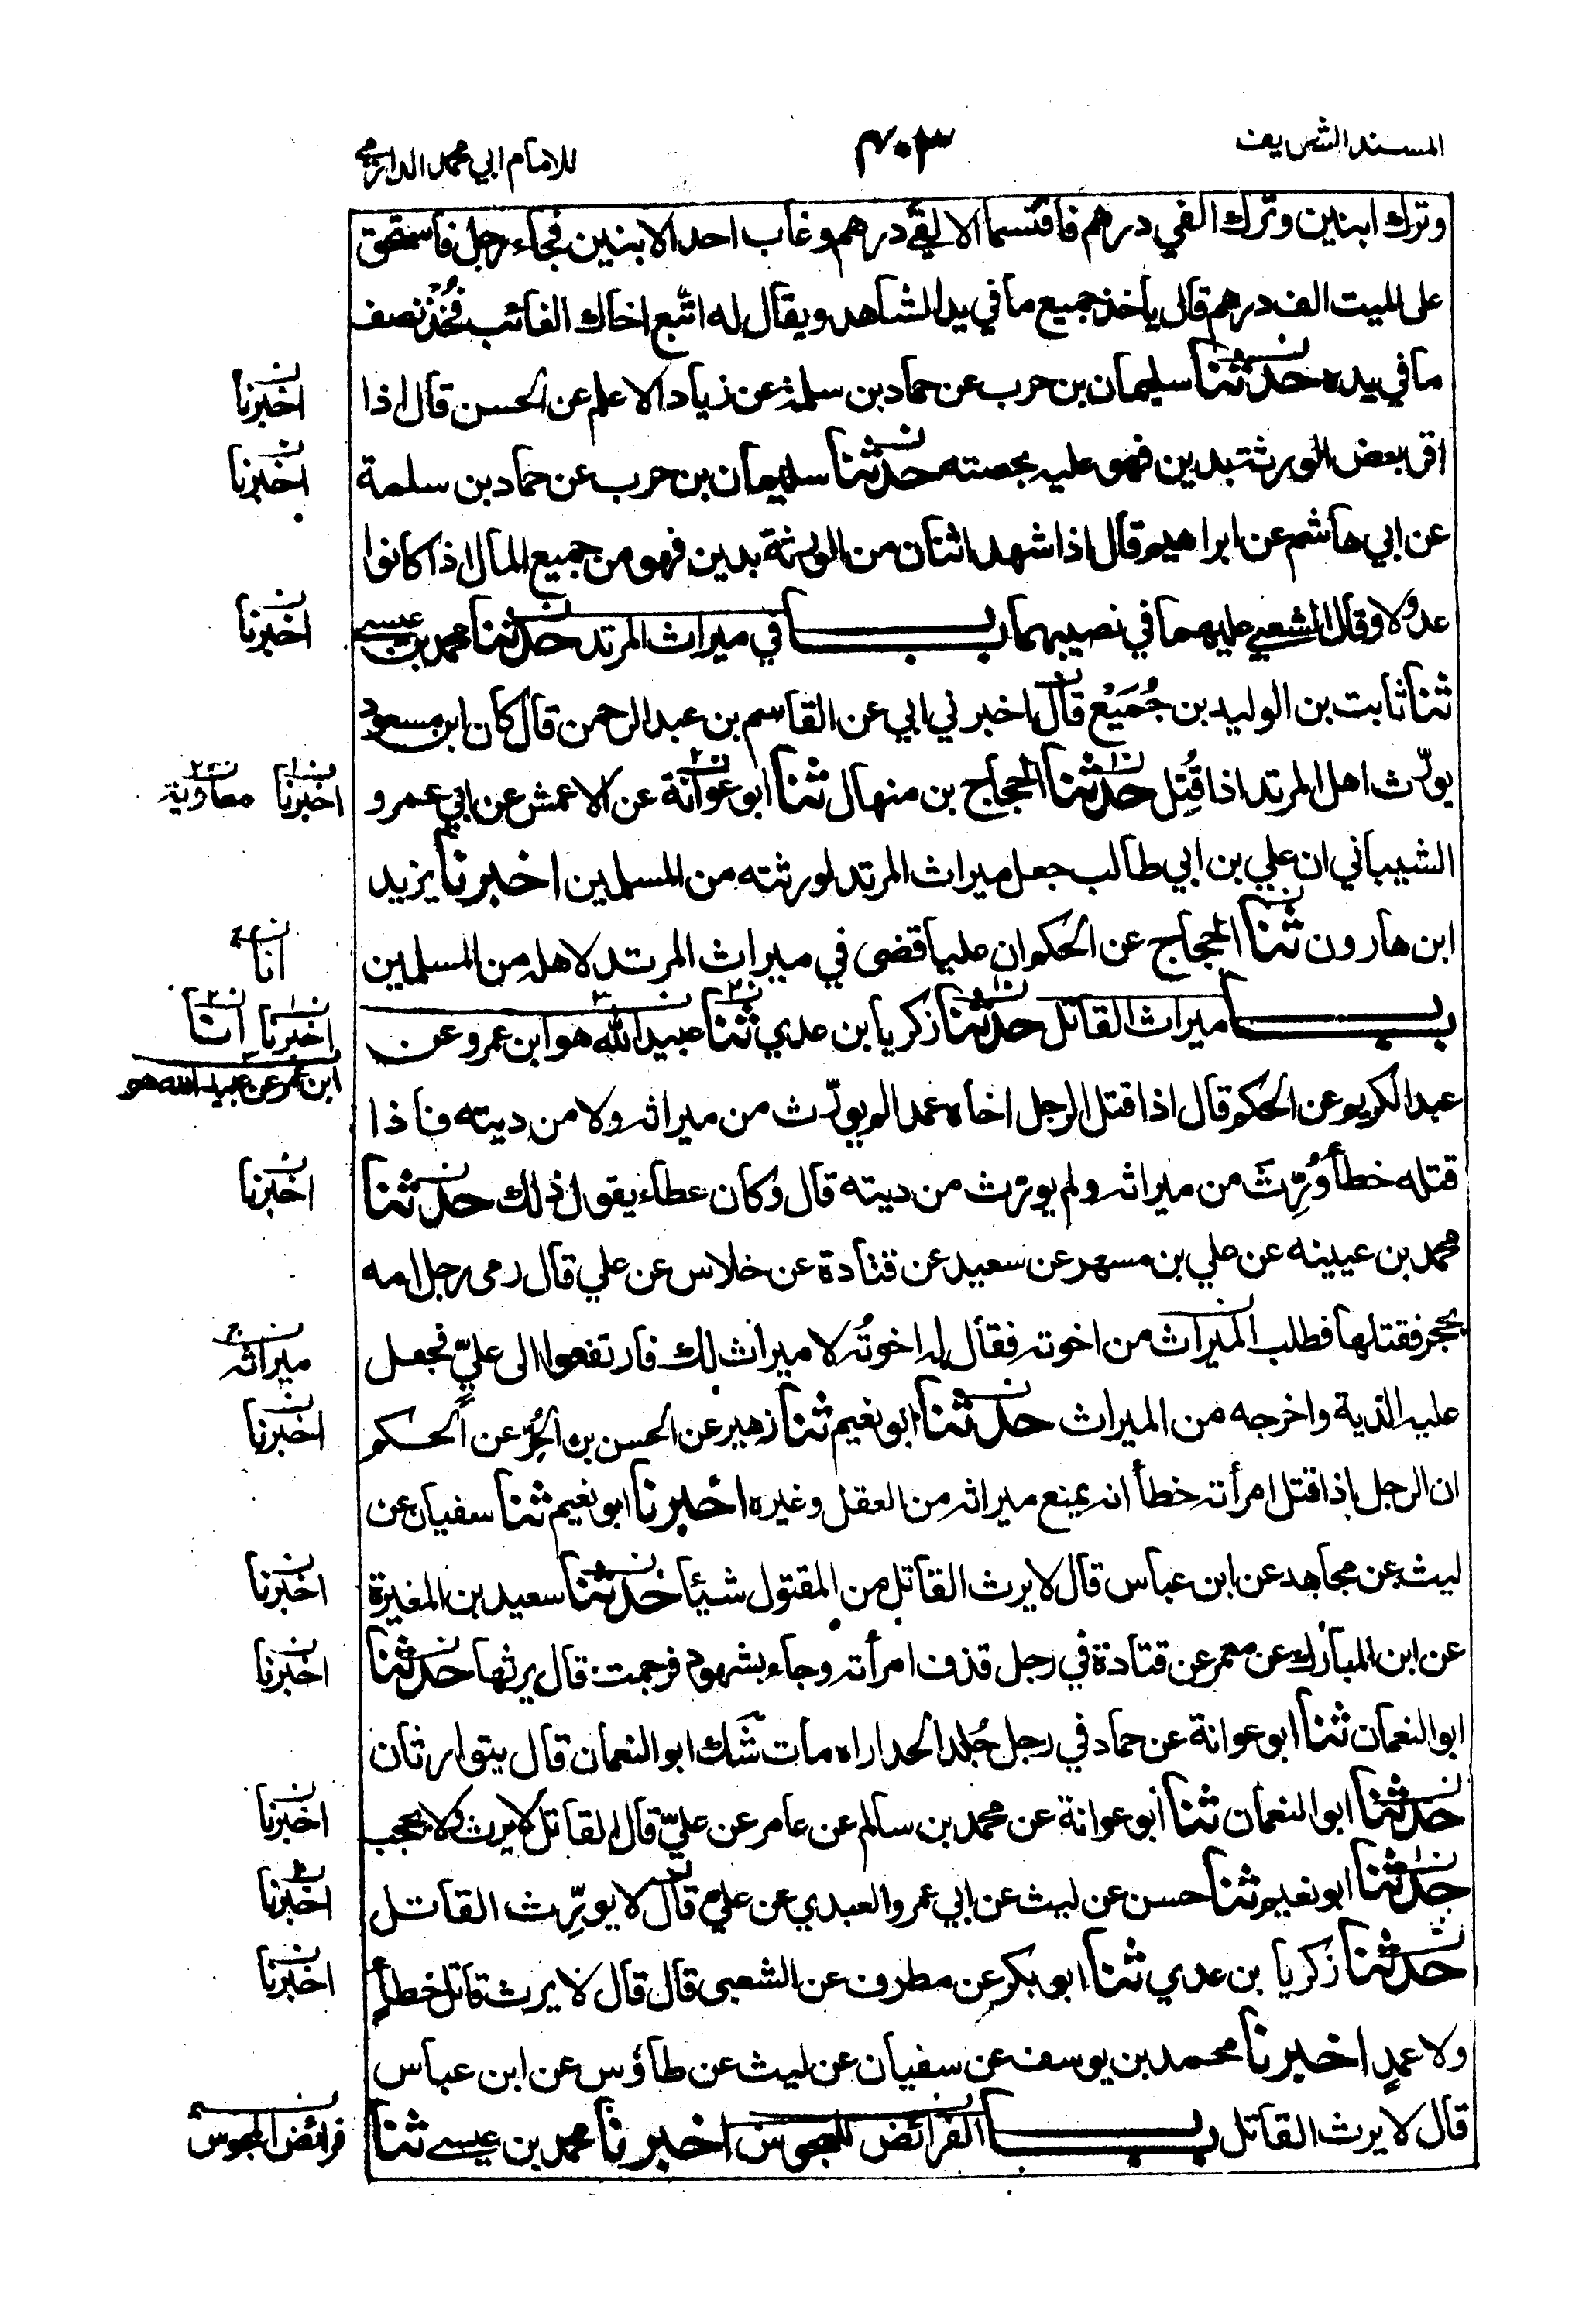 المسند الشريف
٤٠٣
للامام ابي محمد الدارمي
وترك ابنين وترك الفي درهم فاقتسما الالفي درهم وغاب احد الابنين فجاء رجل فاستحق
على الميت الف درهم قال ياخذ جميع ما في يد الشاهد ويقال له اتبع اخاك الغائب فخذ نصف
ما في يده حدثنا سليمان بن حرب عن حماد بن سلمة عن زياد الاعلم عن الحسن قال اذا
اخبرنا
اقر بعض الورثة بدين فهو عليه بحصته حدثنا سليمان بن حرب عن حماد بن سلمة
اخبرنا
عن ابي هاشم عن ابراهيم قال اذا شهد اثنان من الورثة بدين فهو من جميع المال اذا كانوا
عدولا وقال الشعبي عليهما في نصيبهما باب في ميراث المرتد حدثنا محمد بن عيسى
اخبرنا
ثنا ثابت بن الوليد بن جُمَيْع قال اخبرني ابي عن القاسم بن عبد الرحمن قال كان ابن مسعود
يورّث اهل المرتد اذا قُتِل حدثنا الحجاج بن منهال ثنا ابو عوانة عن الاعمش عن ابي عمرو
اخبرنا معاوية
الشيباني ان علي بن ابي طالب جعل ميراث المرتد لورثته من المسلمين اخبرنا يزيد
ابن هارون ثنا الحجاج عن الحكم ان عليا قضى في ميراث المرتد لاهله من المسلمين
انا
باب ميراث القاتل حدثنا زكريا بن عدي ثنا عبيد الله هو ابن عمرو عن
اخبرنا انا
ابن عمرو عن عبيد الله هو
عبد الكريم عن الحكم قال اذا قتل الرجل اخاه عمدا لم يورّث من ميراثه ولا من ديته فاذا
قتله خطأ وُرِّثَ من ميراثه ولم يورّث من ديته قال وكان عطاء يقول ذلك حدثنا
اخبرنا
محمد بن عيينه عن علي بن مسهر عن سعيد عن قتادة عن خلاس عن علي قال رمى رجل امه
بحجر فقتلها فطلب الميراث من اخوته فقال له اخوتُه لا ميراث لك فارتفعوا الى عليٍّ فجعل
ميراثه
عليه الدية واخرجه من الميراث حدثنا ابو نعيم ثنا زهير عن الحسن بن الحُرِّ عن الحكم
اخبرنا
ان الرجل اذا قتل امرأته خطأ انه يمنع ميراثه من العقل وغيره اخبرنا ابو نعيم ثنا سفيان عن
ليث عن مجاهد عن ابن عباس قال لا يرث القاتل من المقتول شيئا حدثنا سعيد بن المغيرة
اخبرنا
عن ابن المبارك عن معمر عن قتادة في رجل قذف امرأته وجاء بشهود فرجمت قال يرثها حدثنا
اخبرنا
ابو النعمان ثنا ابو عوانة عن حماد في رجل جُلد الحد اراه مات شَكَّ ابو النعمان قال يتوارثان
حدثنا ابو النعمان ثنا ابو عوانة عن محمد بن سالم عن عامر عن عليّ قال القاتل لا يرث ولا يحجب
اخبرنا
حدثنا ابو نعيم ثنا حسن عن ليث عن ابي عمرو العبدي عن علي قال لا يورِّث القاتل
اخبرنا
حدثنا زكريا بن عدي ثنا ابو بكر عن مطرف عن الشعبى قال قال لا يرث قاتل خطأٍ
اخبرنا
ولا عمدٍ اخبرنا محمد بن يوسف عن سفيان عن ليث عن طاؤس عن ابن عباس
قال لا يرث القاتل باب الفرائض للمجوس اخبرنا محمد بن عيسے ثنا
فرائض المجوس